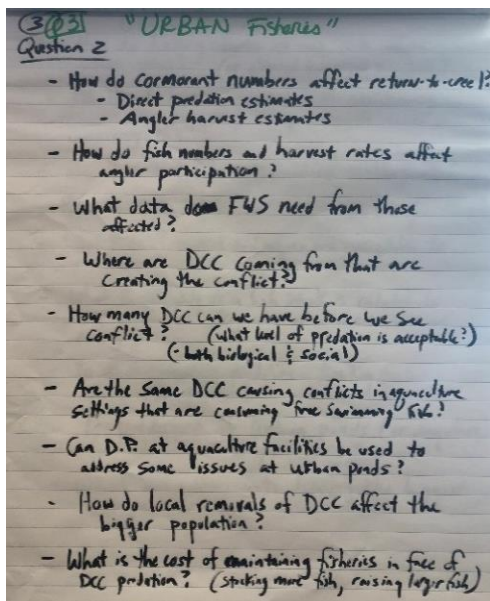 ③ Q3 "URBAN Fisheries"
Question 2
- How do cormorant numbers affect return-to-creel?
- Direct predation estimates
- Angler harvest estimates
- How do fish numbers and harvest rates affect
angler participation?
- What data does FWS need from those
affected?
- Where are DCC coming from that are
creating the conflict?
- How many DCC can we have before we see
conflict? (what level of predation is acceptable?)
(- both biological & social)
- Are the same DCC causing conflicts in aquaculture
settings that are consuming free swimming fish?
- Can D.P. at aquaculture facilities be used to
address some issues at urban ponds?
- How do local removals of DCC affect the
bigger population?
- What is the cost of maintaining fisheries in face of
DCC predation? (stocking more fish, raising larger fish)